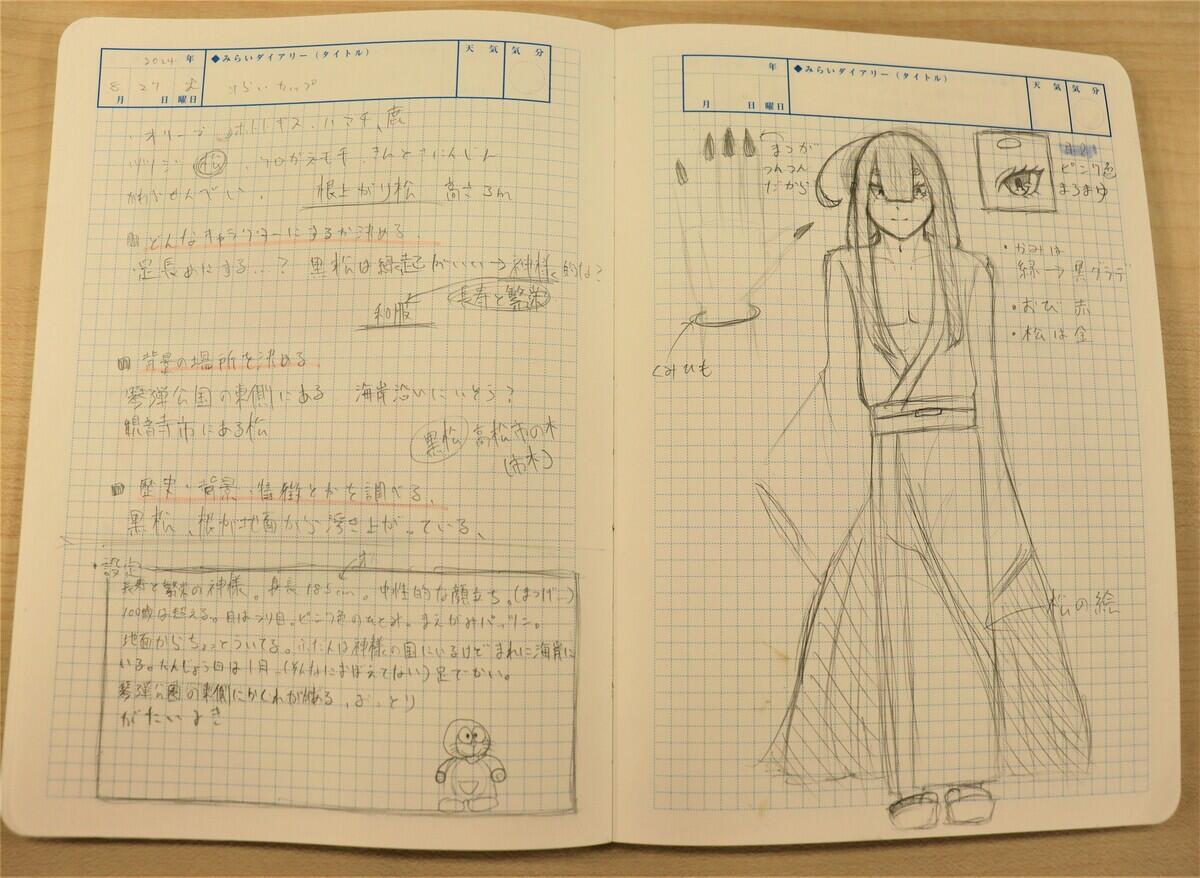 2024年
8月27日 火曜日
◆みらいダイアリー(タイトル)
天気
気分
みらいカップ
オリーブ、ホトトギス、ハマチ、鹿
ツツジ 松
根上がり松 高さ3m
どんなキャラクターにするか決める。
足長めにする…? 黒松は縁起がいい→神様的な?
長寿と繁栄
和服
背景の場所を決める。
琴弾公園の東側にある 海岸沿いにいそう?
観音寺市にある松
黒松 高松市の木
(市木)
歴史・背景・特徴とかを調べる、
黒松、根が地面から浮き上がっている、
・設定
長寿と繁栄の神様。身長185cm。中性的な顔立ち。
100歳は超える。目はつり目。ピンク色のひとみ。まえがみパッツン。
地面からちょっとういてる。ふだんは神様の国にいるけどまれに海岸に
いる。たんじょう日は1月 (そんなにおぼえてない) 足でかい。
琴弾公園の東側にかくれがある、おっとり
がたいよき
年
月 日 曜日
◆みらいダイアリー(タイトル)
天気
気分
まつが
つんつん
だから
ピンク色
まろまゆ
・かみは
緑→黒グラデ
・おび 赤
・松は金
くみひも
松の絵